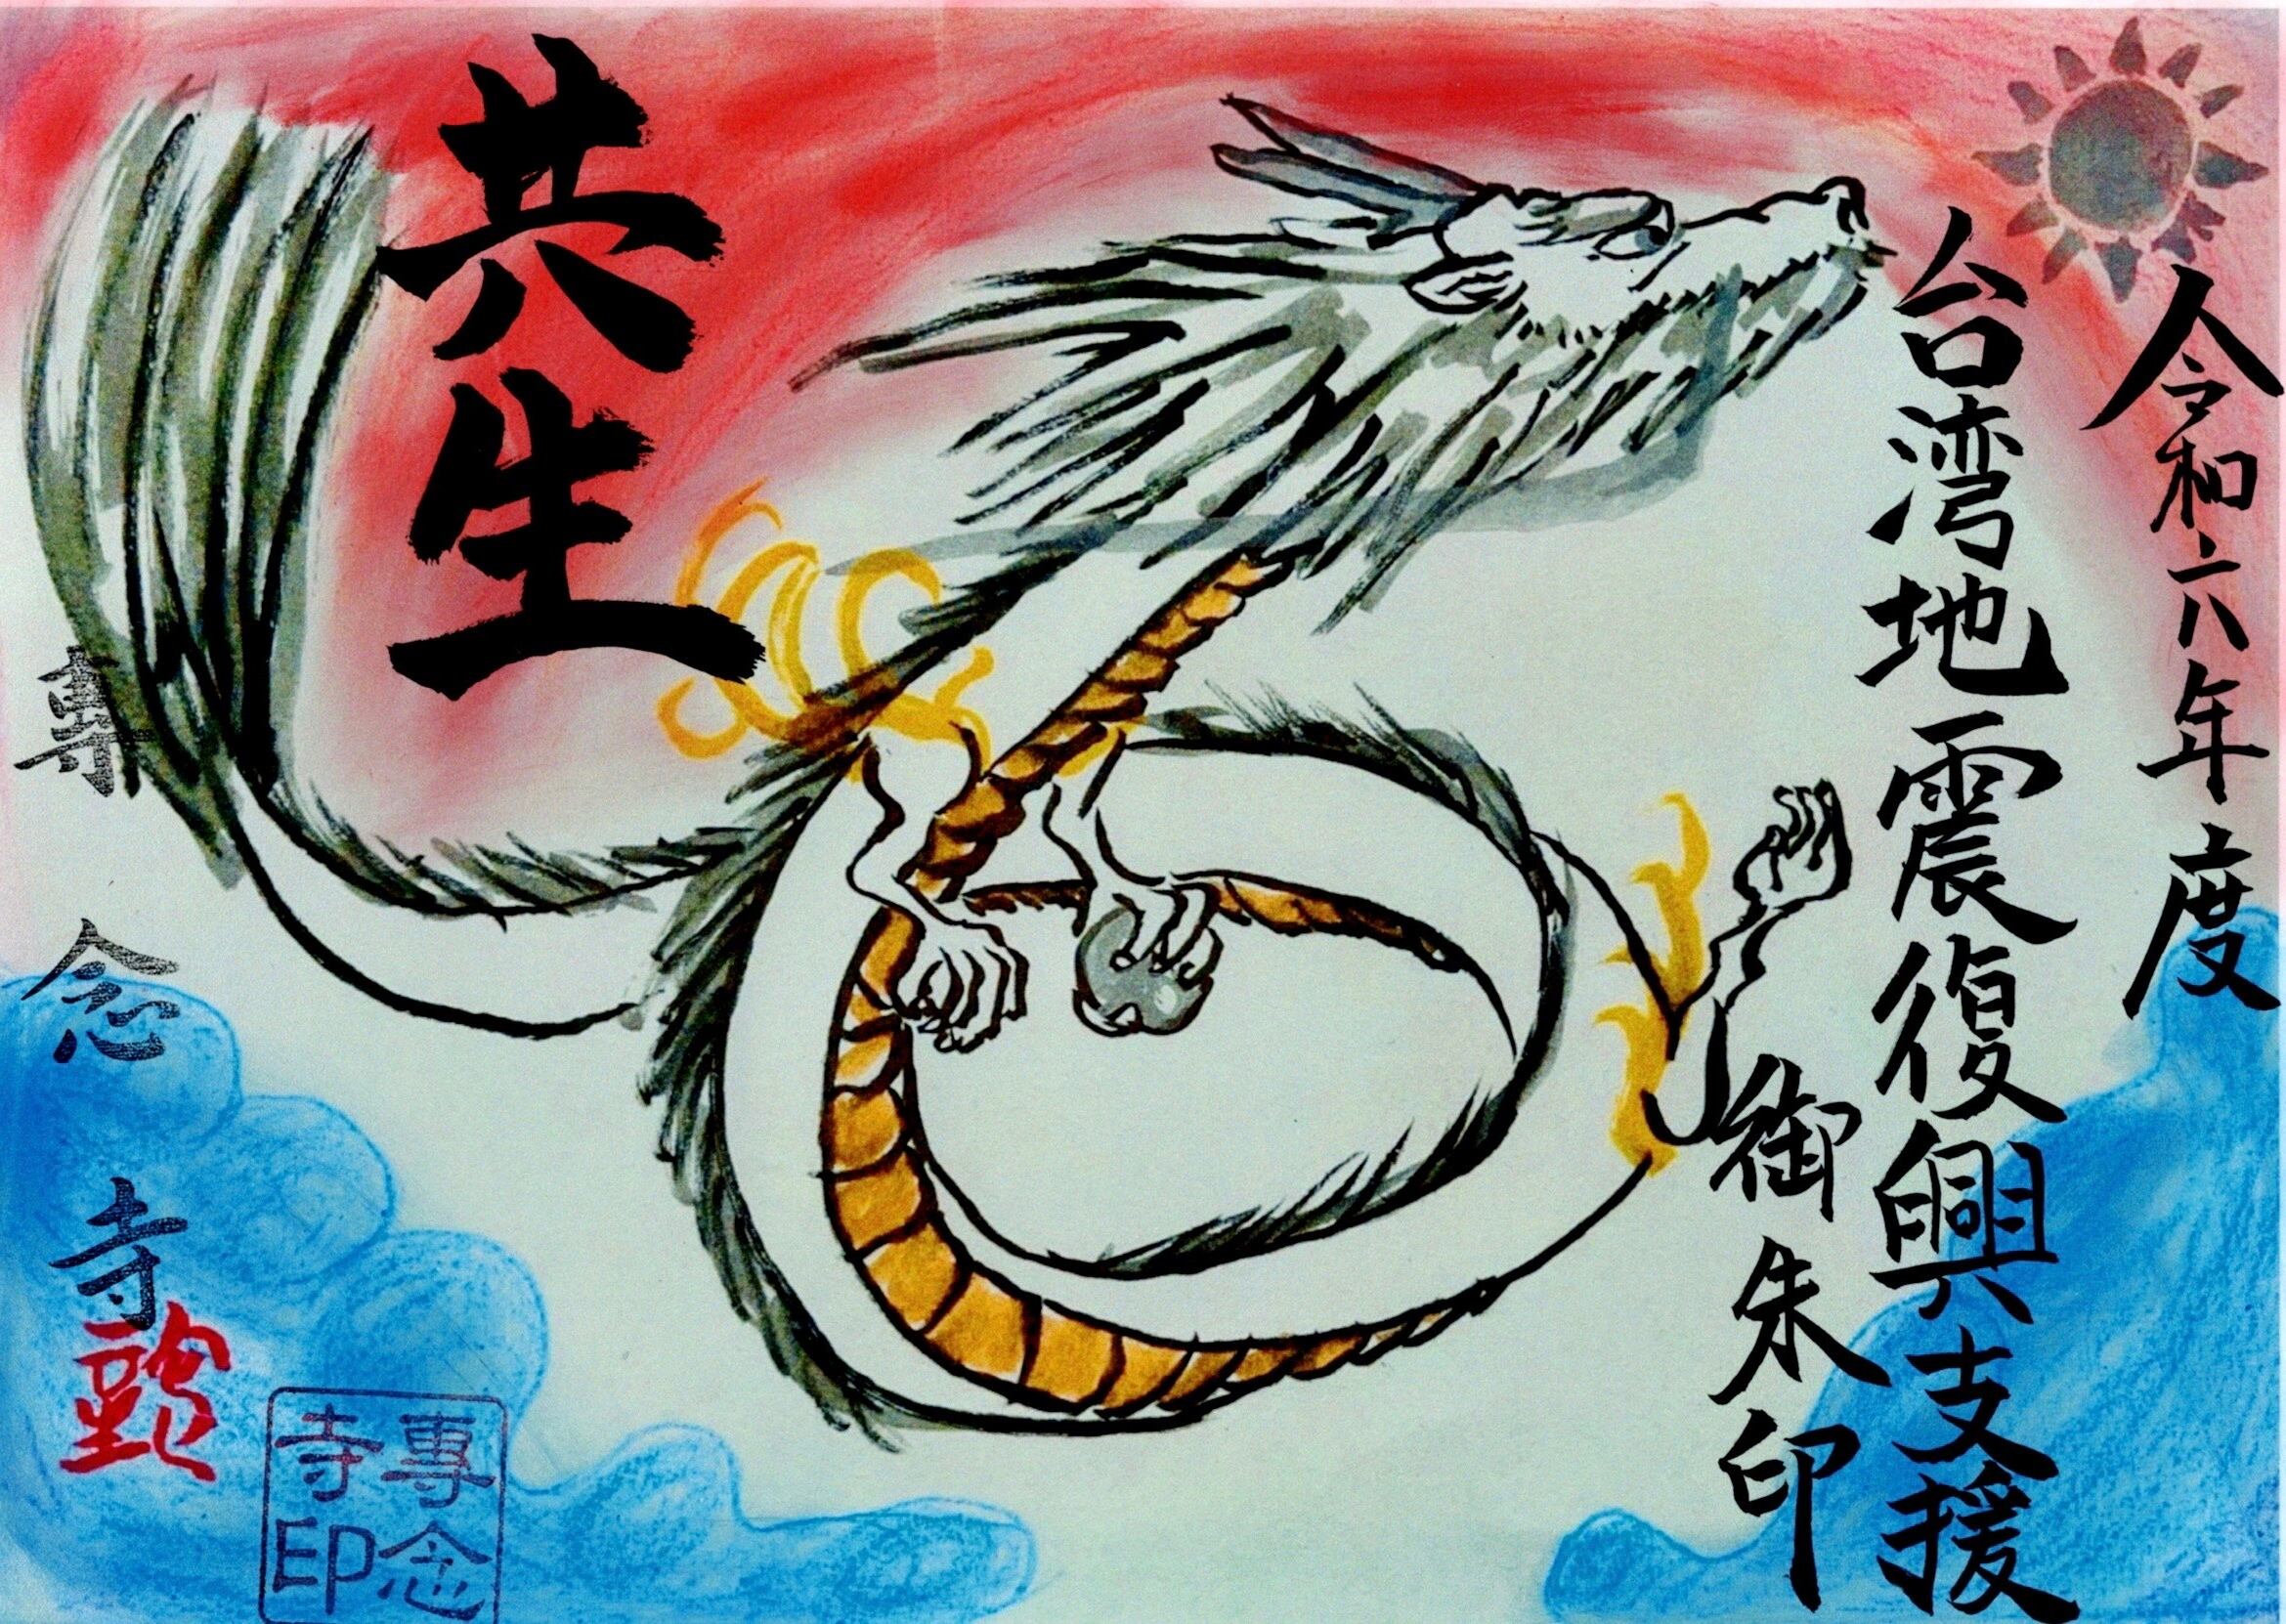 令和六年度
台湾地震復興支援
御朱印
共生
專念寺
專念寺印